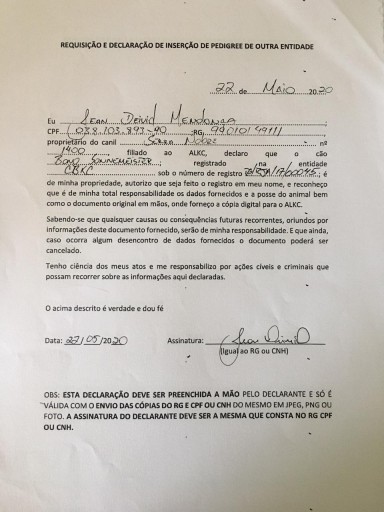 REQUISIÇÃO E DECLARAÇÃO DE INSERÇÃO DE PEDIGREE DE OUTRA ENTIDADE
22 de Maio 2020
Eu Sean Deivid Mendonça
CPF 038.103.893-90 RG 99010149911
proprietário do canil Serra Nobre nº
1400 filiado ao ALKC, declaro que o cão
registrado na entidade
CBKC sob o número de registro é
de minha propriedade, autorizo que seja feito o registro em meu nome, e reconheço
que é de minha total responsabilidade os dados fornecidos e a posse do animal bem
como o documento original em mãos, onde forneço a cópia digital para o ALKC.
Sabendo-se que quaisquer causas ou consequências futuras recorrentes, oriundos por
informações deste documento fornecido, serão de minha responsabilidade. E que ainda,
caso ocorra algum desencontro de dados fornecidos o documento poderá ser
cancelado.
Tenho ciência dos meus atos e me responsabilizo por ações cíveis e criminais que
possam recorrer sobre as informações aqui declaradas.
O acima descrito é verdade e dou fé
Data: 22/05/2020 Assinatura: Sean Deivid
(Igual ao RG ou CNH)
OBS: ESTA DECLARAÇÃO DEVE SER PREENCHIDA A MÃO PELO DECLARANTE E SÓ É
VÁLIDA COM O ENVIO DAS CÓPIAS DO RG E CPF OU CNH DO MESMO EM JPEG, PNG OU
FOTO. A ASSINATURA DO DECLARANTE DEVE SER A MESMA QUE CONSTA NO RG CPF
OU CNH.